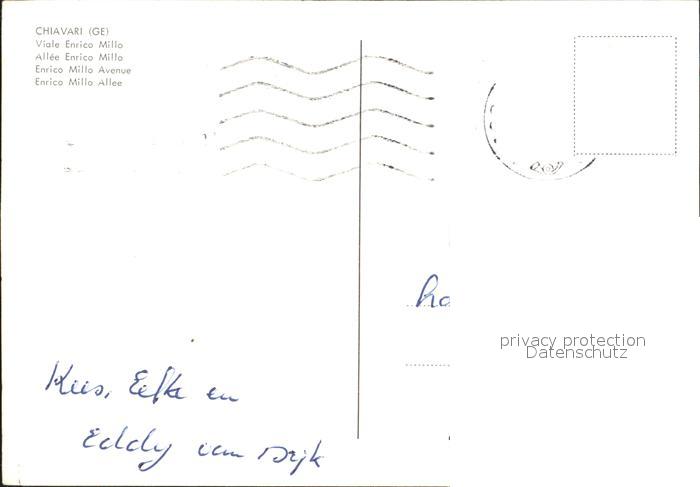 CHIAVARI (GE)
Viale Enrico Millo
Allée Enrico Millo
Enrico Millo Avenue
Enrico Millo Allee
privacy protection
Datenschutz
Kees, Eefke en
Eddy van Dijk